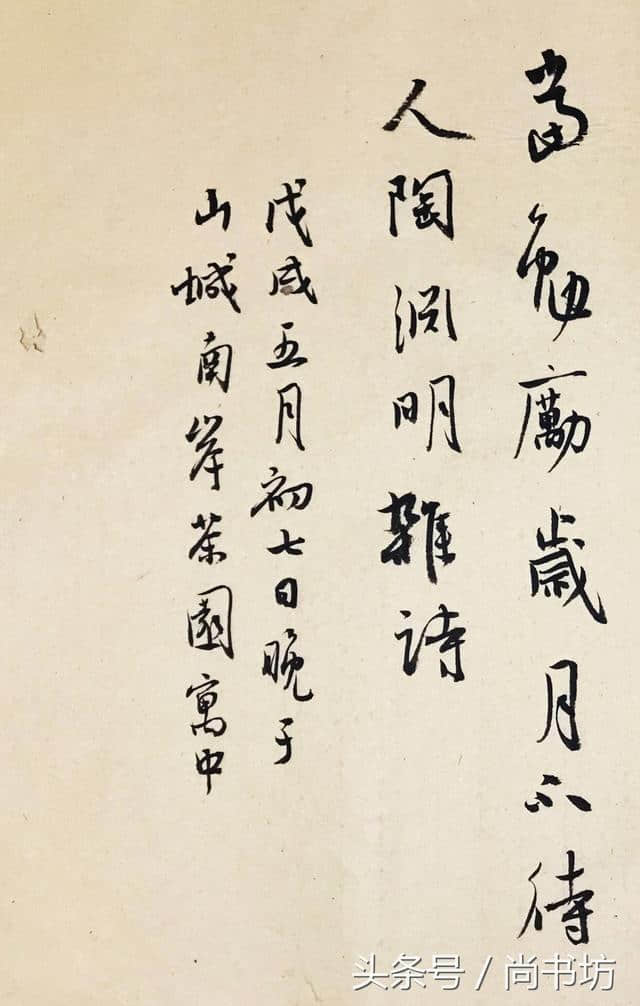 當勉勵歲月不待
人陶渊明雜詩
戊戌五月初七日晚于
山城南岸茶園寓中
头条号/尚书坊